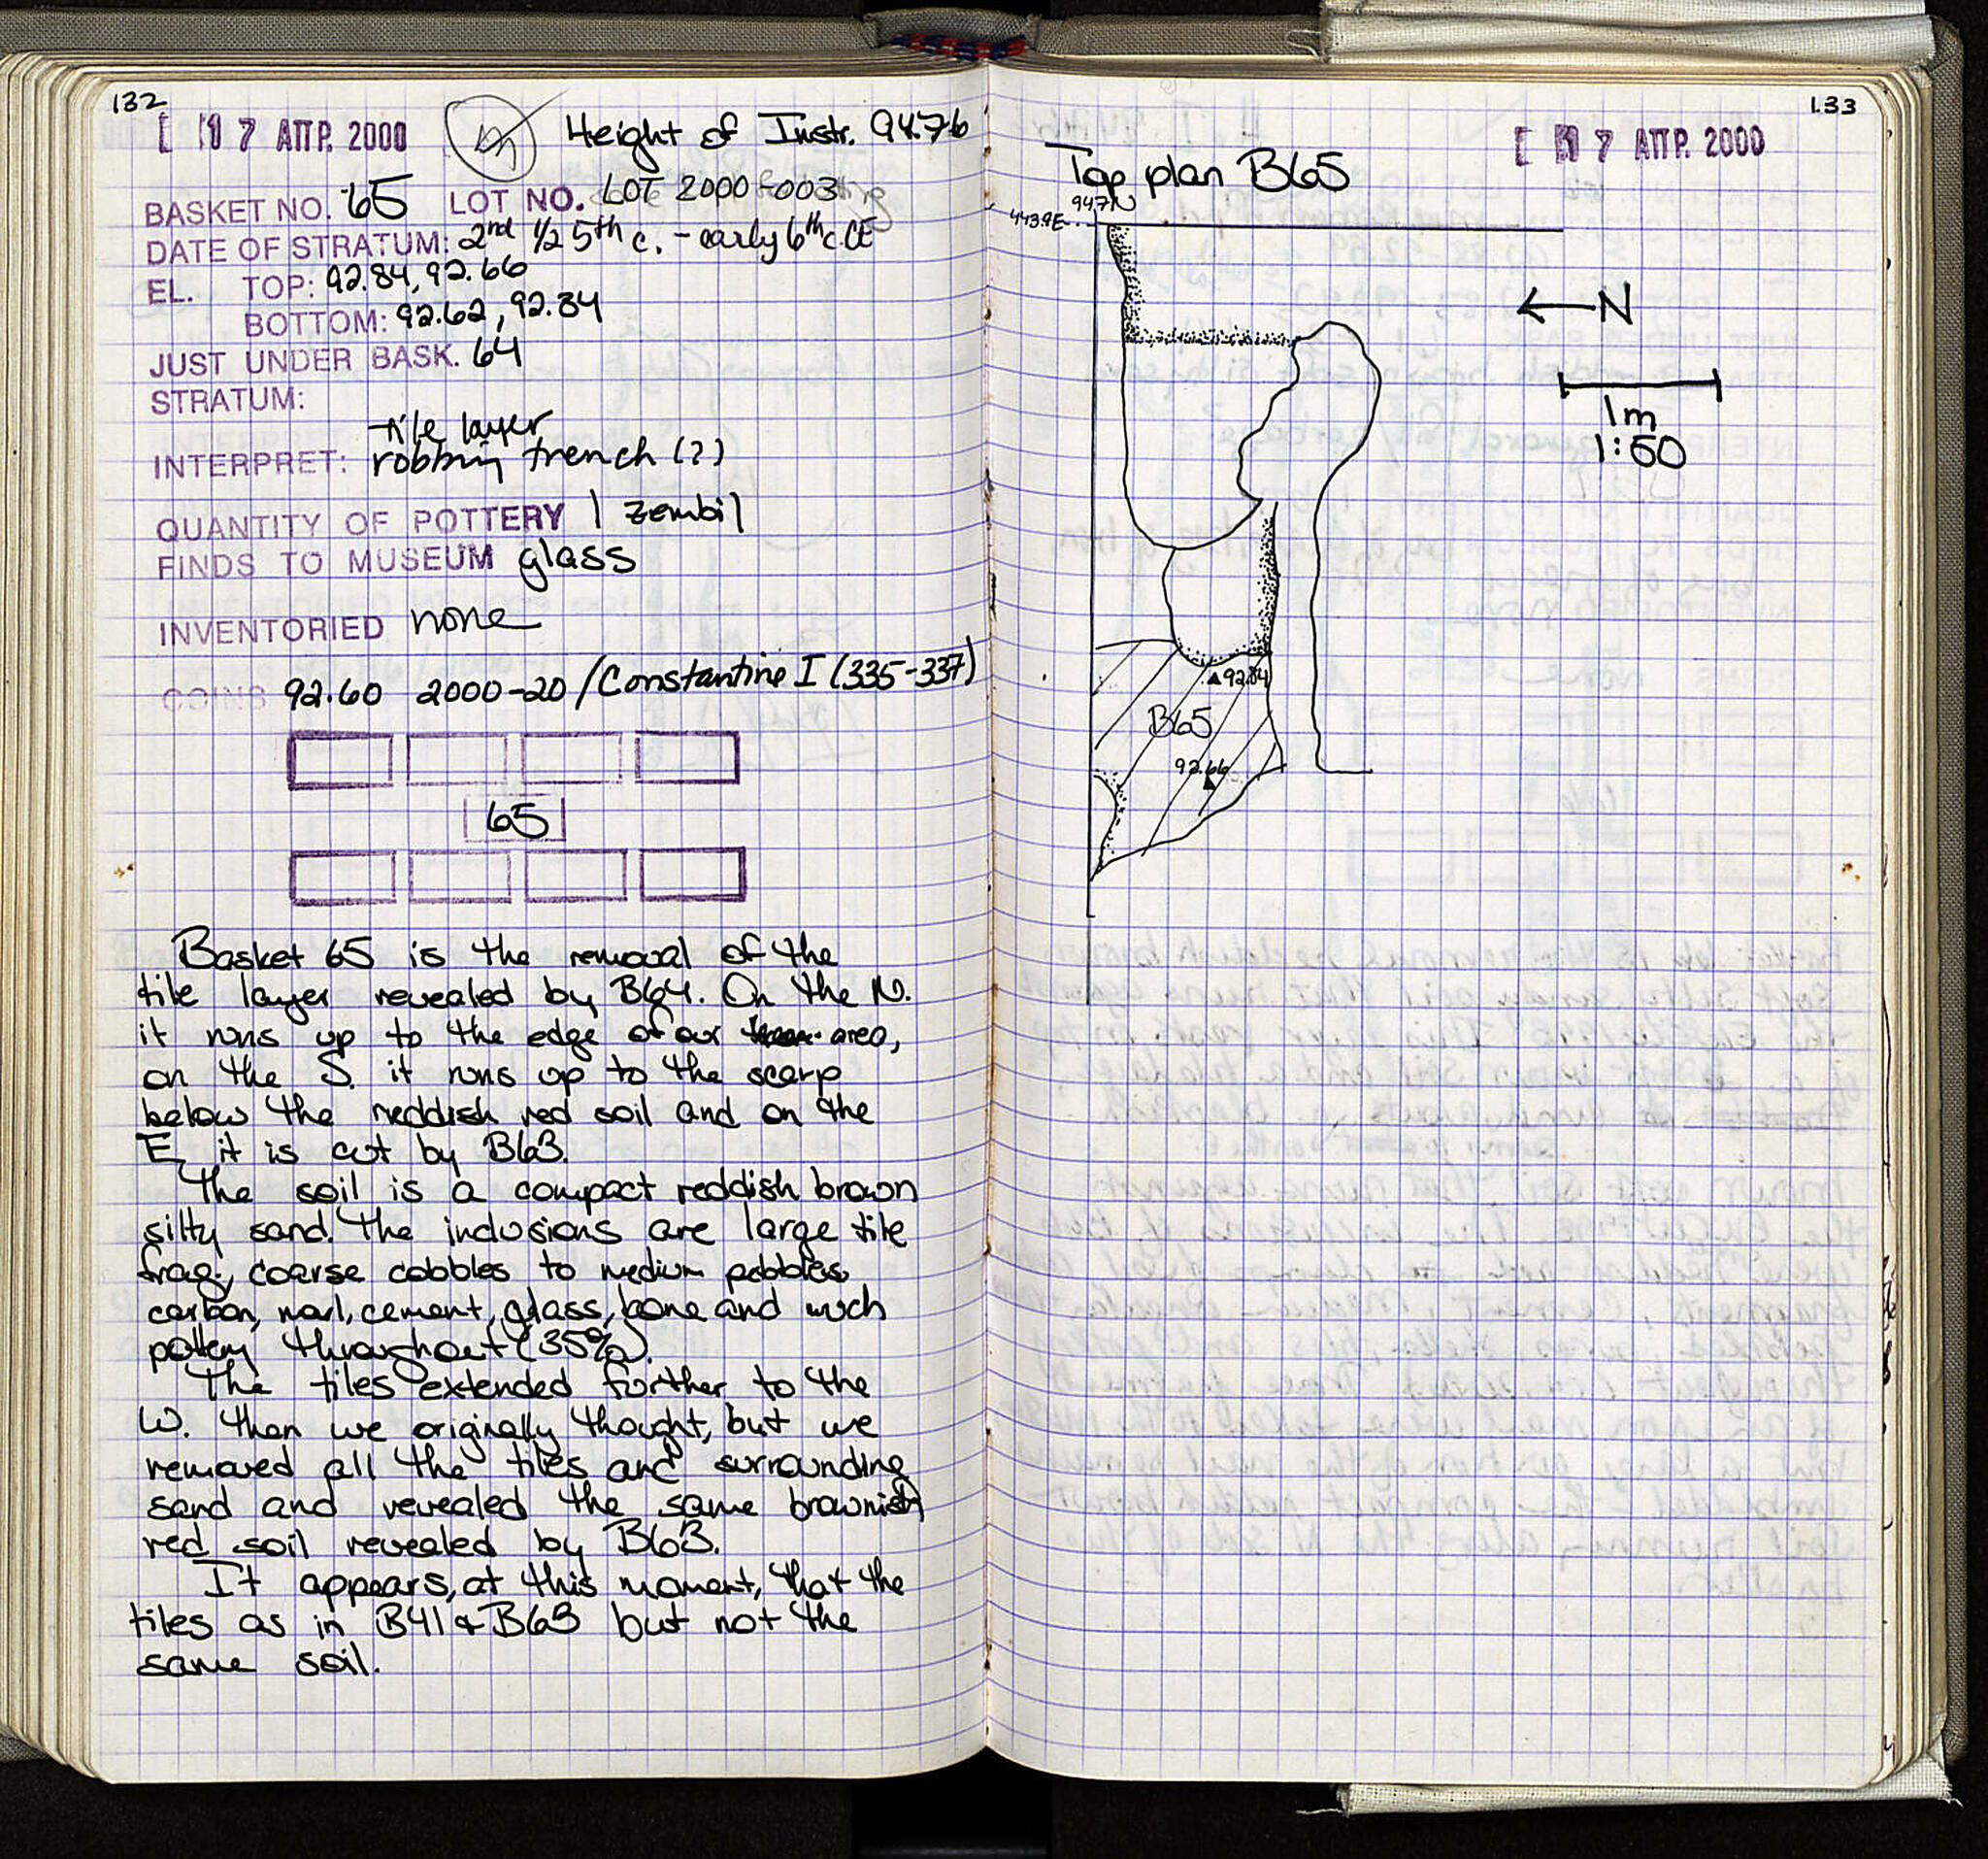 132
17 ΑΠΡ. 2000 Height of Instr. 94.76
BASKET NO. 65 LOT NO. LOT 2000-003
DATE OF STRATUM: 2nd 1/2 5th c. - early 6th c. CE
EL. TOP: 92.84, 92.66
BOTTOM: 92.62, 92.84
JUST UNDER BASK. 64
STRATUM:
tile layer
INTERPRET: robbing trench (?)
QUANTITY OF POTTERY 1 zembil
FINDS TO MUSEUM glass
INVENTORIED none
COINS 92.60 2000-20 / Constantine I (335-337)
65
Basket 65 is the removal of the
tile layer revealed by B64. On the N.
it runs up to the edge of our area,
on the S. it runs up to the scarp
below the reddish red soil and on the
E, it is cut by B63.
The soil is a compact reddish brown
silty sand. The inclusions are large tile
frag., coarse cobbles to medium pebbles,
carbon, marl, cement, glass, bone and much
pottery throughout (35%).
The tiles extended further to the
W. than we originally thought, but we
removed all the tiles and surrounding
sand and revealed the same brownish
red soil revealed by B63.
It appears, at this moment, that the
tiles as in B41 & B63 but not the
same soil.
133
17 ΑΠΡ. 2000
Top plan B65
947N
443.9E
←N
1m
1:50
92.84
B65
92.66